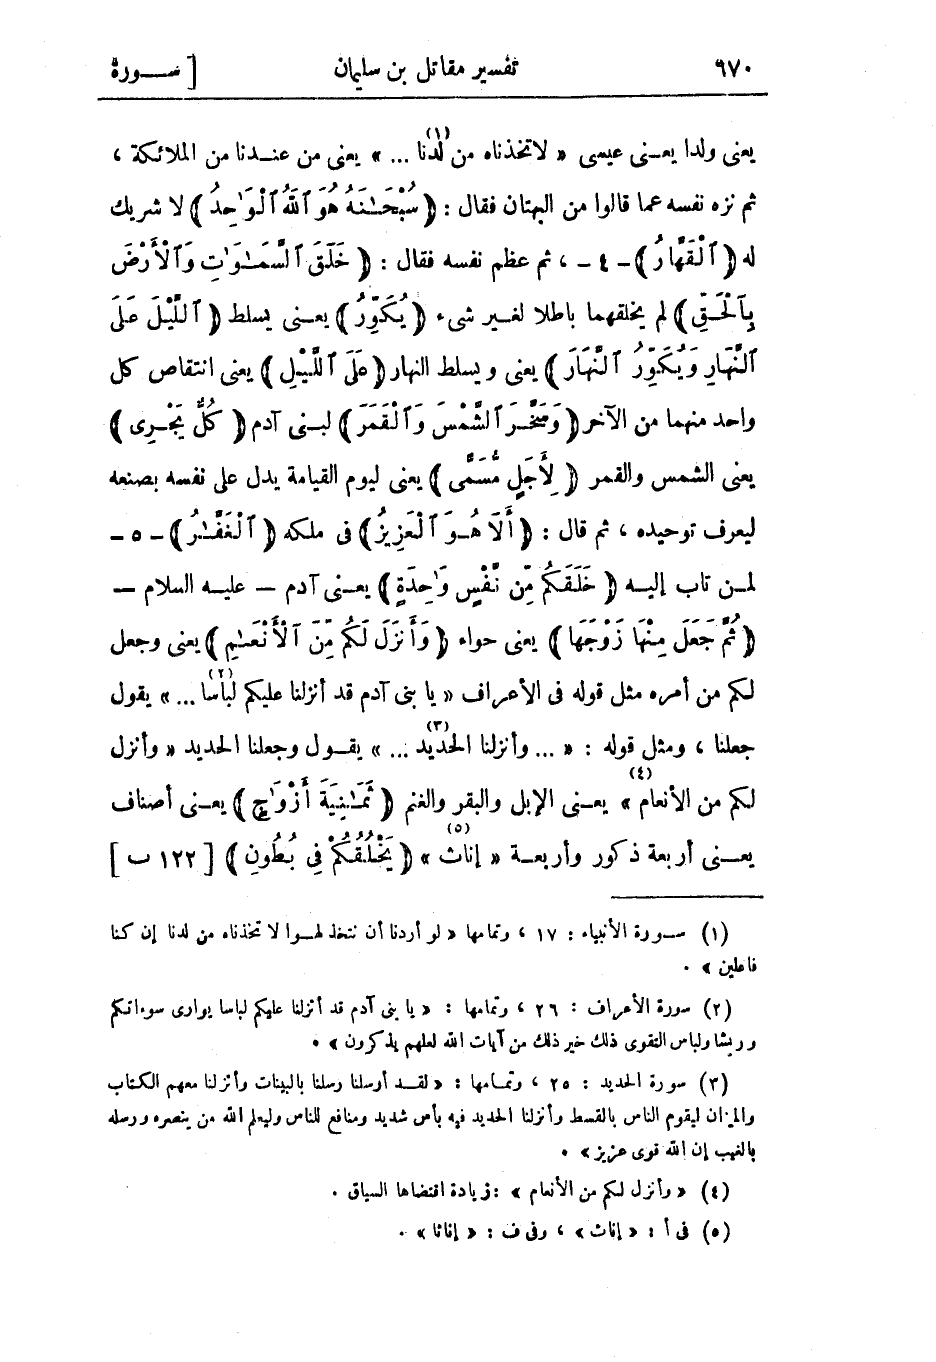 ٦٧٠ تفسير مقاتل بن سليمان [ سورة
يعنى ولدا يعنى عيسى « لاتخذناه من لدنا (١) ... » يعنى من عندنا من الملائكة ،
ثم نزه نفسه عما قالوا من البهتان فقال : ﴿ سُبْحَـٰنَهُ هُوَ ٱللَّهُ ٱلْوَٰحِدُ ﴾ لا شريك
له ﴿ ٱلْقَهَّارُ ﴾ - ٤ - ، ثم عظم نفسه فقال : ﴿ خَلَقَ ٱلسَّمَـٰوَٰتِ وَٱلْأَرْضَ
بِٱلْحَقِّ ﴾ لم يخلقهما باطلا لغير شىء ﴿ يُكَوِّرُ ﴾ يعنى يسلط ﴿ ٱللَّيْلَ عَلَى
ٱلنَّهَارِ وَيُكَوِّرُ ٱلنَّهَارَ ﴾ يعنى ويسلط النهار ﴿ عَلَى ٱللَّيْلِ ﴾ يعنى انتقاص كل
واحد منهما من الآخر ﴿ وَسَخَّرَ ٱلشَّمْسَ وَٱلْقَمَرَ ﴾ لبنى آدم ﴿ كُلٌّ يَجْرِى ﴾
يعنى الشمس والقمر ﴿ لِأَجَلٍ مُّسَمًّى ﴾ يعنى ليوم القيامة يدل على نفسه بصنعه
ليعرف توحيده ، ثم قال : ﴿ أَلَا هُوَ ٱلْعَزِيزُ ﴾ فى ملكه ﴿ ٱلْغَفَّـٰرُ ﴾ - ٥ -
لمن تاب إليه ﴿ خَلَقَكُم مِّن نَّفْسٍ وَٰحِدَةٍ ﴾ يعنى آدم — عليه السلام —
﴿ ثُمَّ جَعَلَ مِنْهَا زَوْجَهَا ﴾ يعنى حواء ﴿ وَأَنزَلَ لَكُم مِّنَ ٱلْأَنْعَـٰمِ ﴾ يعنى وجعل
لكم من أمره مثل قوله فى الأعراف « يا بنى آدم قد أنزلنا عليكم لباسا (٢) ... » يقول
جعلنا ، ومثل قوله : « ... وأنزلنا الحديد (٣) ... » يقول وجعلنا الحديد « وأنزل
لكم من الأنعام (٤) » يعنى الإبل والبقر والغنم ﴿ ثَمَـٰنِيَةَ أَزْوَٰجٍ ﴾ يعنى أصناف
يعنى أربعة ذكور وأربعة « إناث (٥) » ﴿ يَخْلُقُكُمْ فِى بُطُونِ ﴾ [ ١٢٢ ب ]
(١) سورة الأنبياء : ١٧ ، وتمامها « لو أردنا أن نتخذ لهوا لا تخذناه من لدنا إن كنا
فاعلين » .
(٢) سورة الأعراف : ٢٦ ، وتمامها : « يا بنى آدم قد أنزلنا عليكم لباسا يوارى سوءاتكم
وريشا ولباس التقوى ذلك خير ذلك من آيات الله لعلهم يذكرون » .
(٣) سورة الحديد : ٢٥ ، وتمامها : « لقد أرسلنا رسلنا بالبينات وأنزلنا معهم الكتاب
والميزان ليقوم الناس بالقسط وأنزلنا الحديد فيه بأس شديد ومنافع للناس وليعلم الله من ينصره ورسله
بالغيب إن الله قوى عزيز » .
(٤) « وأنزل لكم من الأنعام » : زيادة اقتضاها السياق .
(٥) فى أ : « إناث » ، وفى ف : « إناثا » .